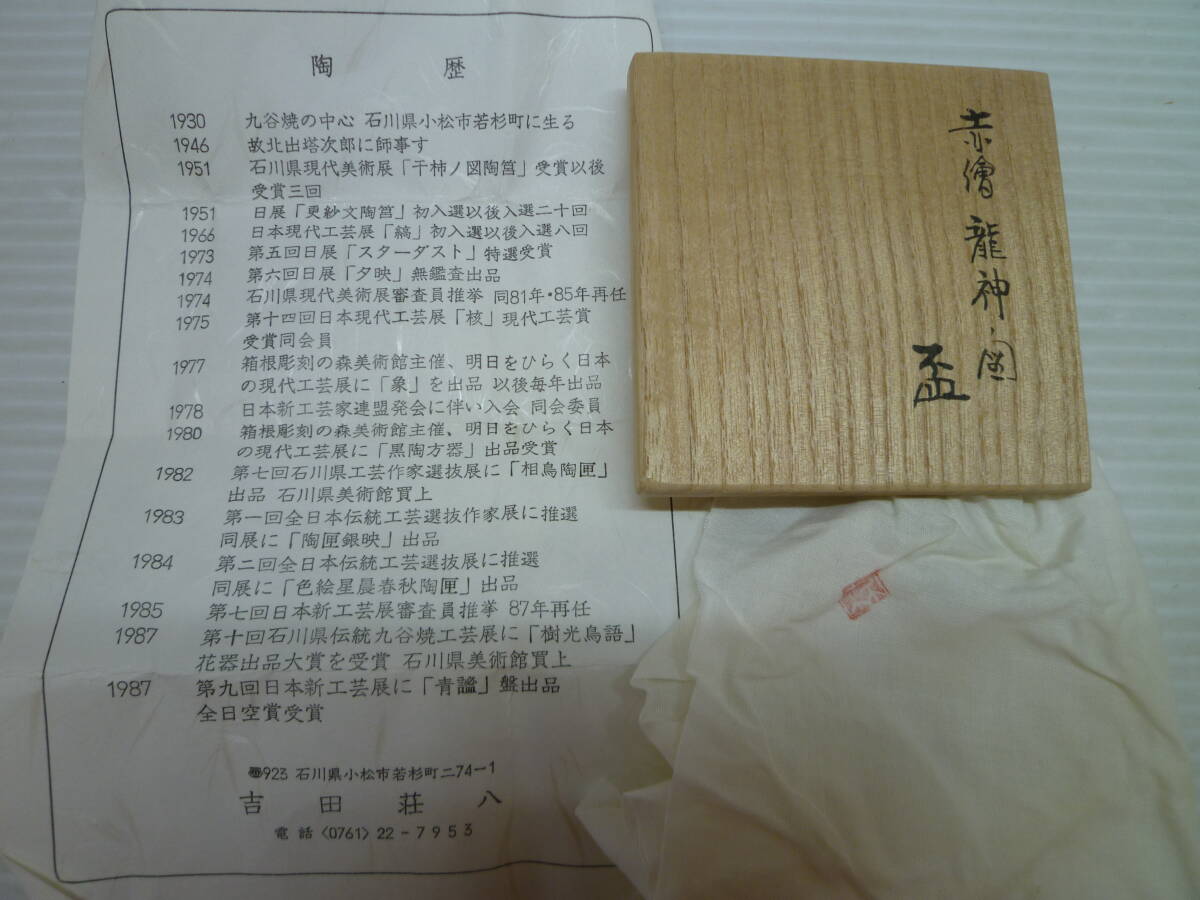 陶歴
1930 九谷焼の中心 石川県小松市若杉町に生る
1946 故北出塔次郎に師事す
1951 石川県現代美術展「干柿ノ図陶筥」受賞以後
受賞三回
1951 日展「更紗文陶筥」初入選以後入選二十回
1966 日本現代工芸展「縞」初入選以後入選八回
1973 第五回日展「スターダスト」特選受賞
1974 第六回日展「夕映」無鑑査出品
1974 石川県現代美術展審査員推挙 同81年・85年再任
1975 第十四回日本現代工芸展「核」現代工芸賞
受賞同会員
1977 箱根彫刻の森美術館主催、明日をひらく日本
の現代工芸展に「象」を出品 以後毎年出品
1978 日本新工芸家連盟発会に伴い入会 同会委員
1980 箱根彫刻の森美術館主催、明日をひらく日本
の現代工芸展に「黒陶方器」出品受賞
1982 第七回石川県工芸作家選抜展に「相鳥陶匣」
出品 石川県美術館買上
1983 第一回全日本伝統工芸選抜作家展に推選
同展に「陶匣銀映」出品
1984 第二回全日本伝統工芸選抜展に推選
同展に「色絵星晨春秋陶匣」出品
1985 第七回日本新工芸展審査員推挙 87年再任
1987 第十回石川県伝統九谷焼工芸展に「樹光鳥語」
花器出品大賞を受賞 石川県美術館買上
1987 第九回日本新工芸展に「青謐」盤出品
全日空賞受賞
〠923 石川県小松市若杉町二74-1
吉田荘八
電話〈0761〉22-7953
赤繪龍神ノ図
盃